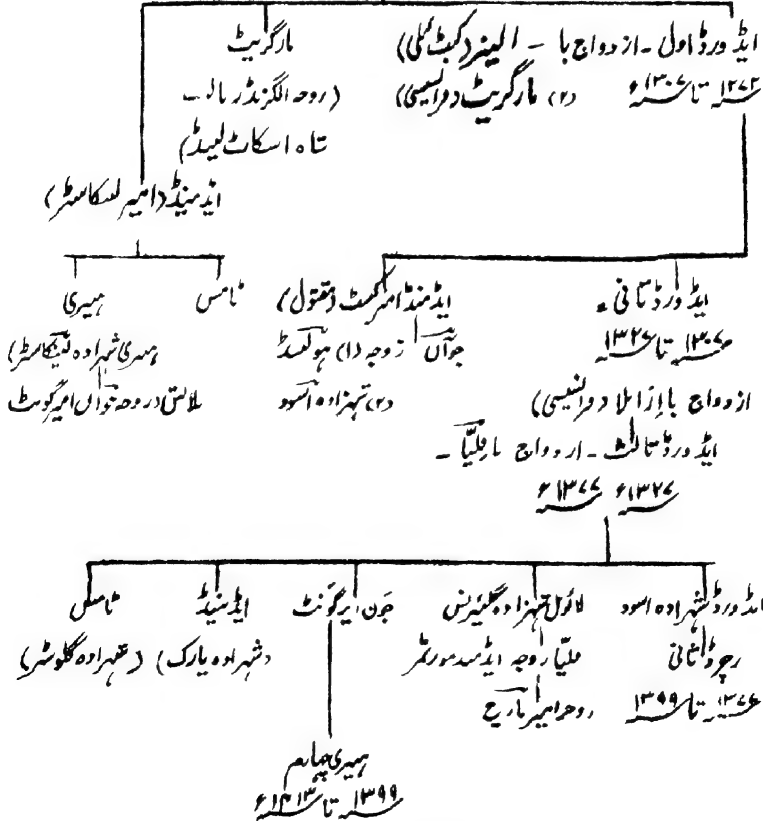 ایڈورڈ اول - ازدواج با - الینر (کبٹئلی)
۱۲۷۲ تا ۱۳۰۷ء (۲) مارگریٹ (فرانسیسی)
مارگریٹ
(زوجہ الگزنڈر ثالث
شاہ اسکاٹ لینڈ)
ایڈمنڈ (امیر لنکاسٹر)
ایڈورڈ ثانی
۱۳۰۷ تا ۱۳۲۷
ازدواج با ازابلا (فرانسیسی)
ایڈمنڈ امیر کنٹ (مقتول)
جوآن زوجہ (۱) ہولینڈ
(۲) شہزادہ اسود
ٹامس
ہنری
ہنری شہزادہ لینکاسٹر)
بلانش زوجہ جوآن امیر گونٹ
ایڈورڈ ثالث - ازدواج با فلپّا -
۱۳۲۷ء ۱۳۷۷ء
ایڈورڈ شہزادہ اسود
رچرڈ ثانی
۱۳۷۷ تا ۱۳۹۹
لائونل شہزادہ کلیرنس
فلپّا زوجہ ایڈمنڈ مورٹمر
زوجہ امیر مارچ
جون امیر گونٹ
ایڈمنڈ
(شہزادہ یارک)
ٹامس
(شہزادہ گلوسٹر)
ہنری چہارم
۱۳۹۹ تا ۱۴۱۳ء